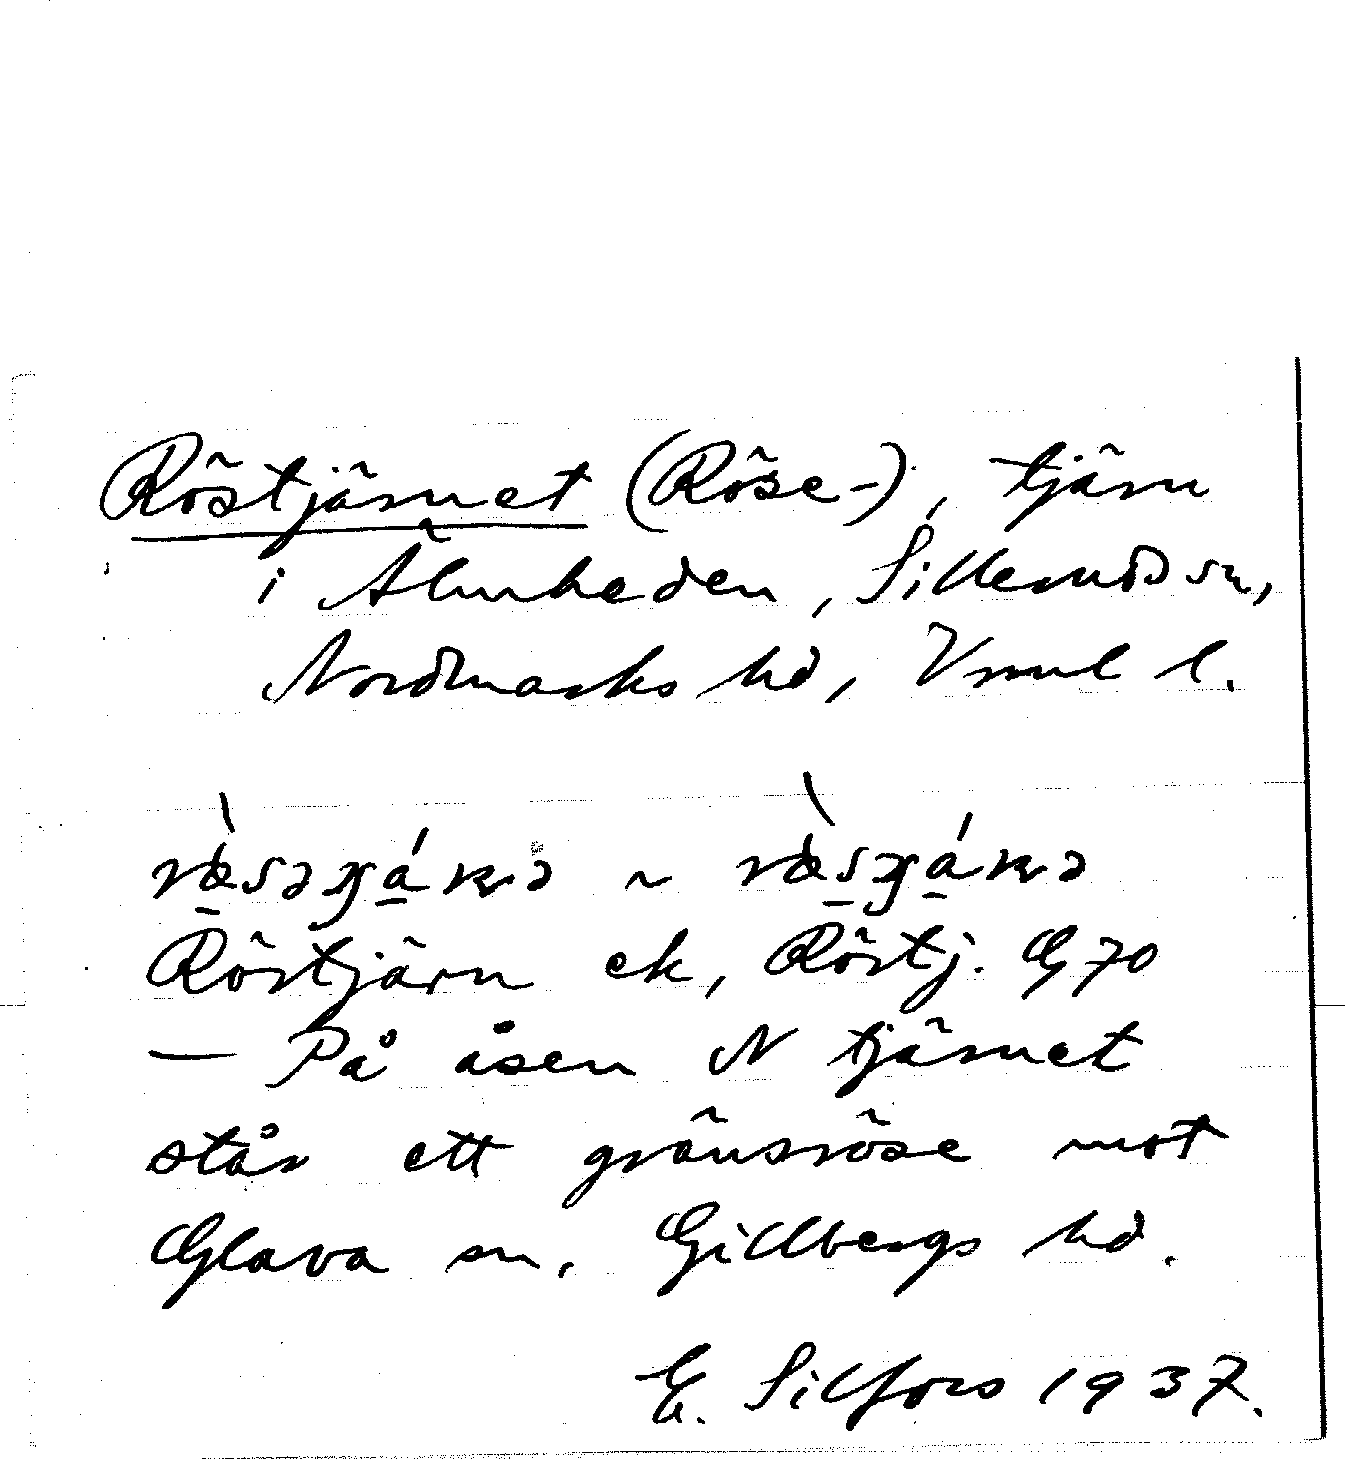 Röstjärnet (Röse-), tjärn
i Älmheden, Sillerud sn,
Nordmarks hd, Vrml l.
Röstjärn ek, Röstj. G 70
— På åsen N tjärnet
står ett gränsröse mot
Glava sn, Gillbergs hd.
E. Silfors 1937.